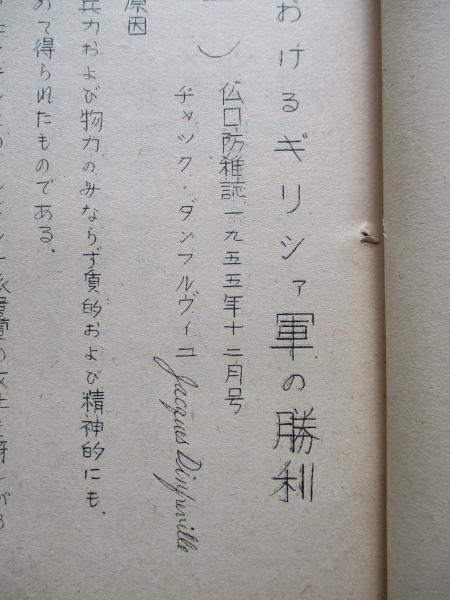 おけるギリシァ軍の勝利
)
仏口防雑誌一九五五年十二月号
チャック・ダンフルヴィユ Jacques Dinfreville
原因
兵力および物力のみならず質的および精神的にも、
めて得られたものである。